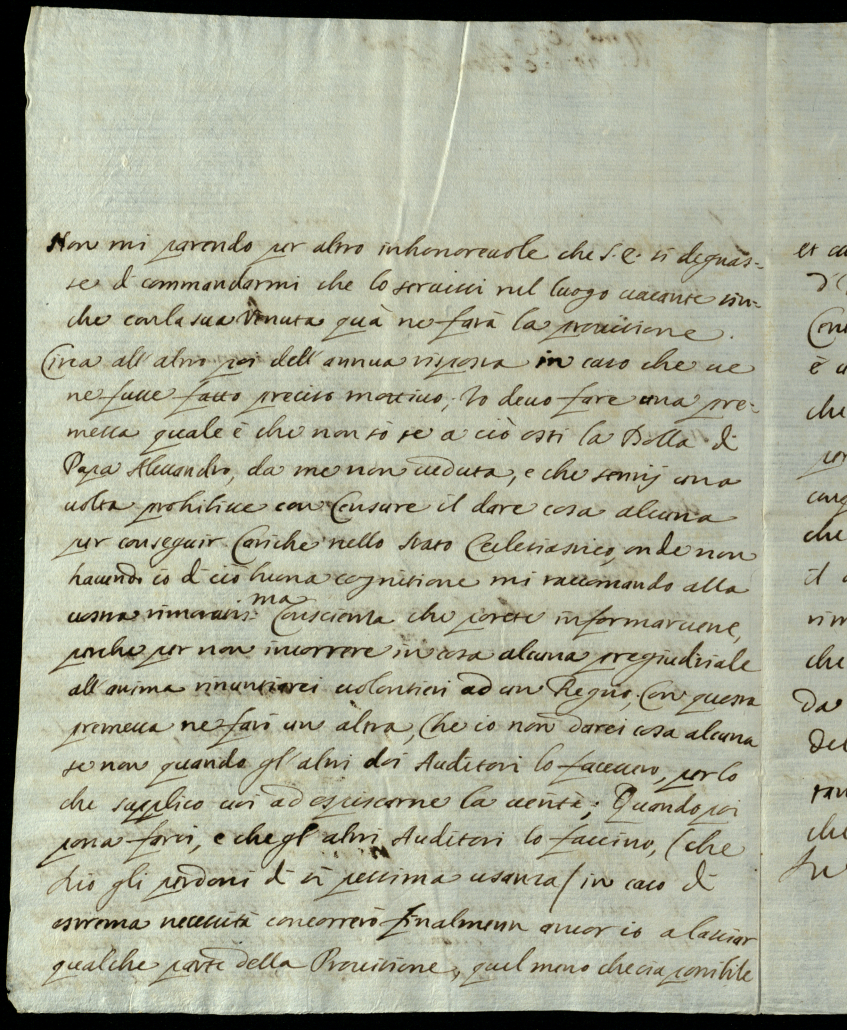 Non mi parendo per altro inhonorevole che S. E. si degnas=
se di commandarmi che lo servissi nel luogo vacante sin=
che con la sua venuta quà ne farà la provisione.
Circa all'altro poi dell'annua risposta in caso che ve
ne fusse fatto preciso mottivo; Io devo fare una pre=
messa quale è che non sò se a ciò osti la Bolla di
Papa Alessandro, da me non veduta, e che sentij una
volta prohibisse con Censure il dare cosa alcuna
per conseguir Cariche nello Stato Ecclesiastico, onde non
havendo io di ciò buona cognitione mi raccomando alla
vostra timoratis.ma Conscienza che potete informarvene,
perche per non incorrere in cosa alcuna pregiudiziale
all'anima rinuntiarei volontieri ad un Regno; Con questa
premessa ne farò un altra, Che io non darei cosa alcuna
se non quando gl'altri doi Auditori lo facessero, per lo
che supplico voi ad espiscarne la verità; Quando poi
possa farsi, e che gl'altri Auditori lo faccino, (che
Dio gli perdoni di sì pessima usanza/ in caso di
estrema necessità concorrerò finalmente ancor io a lasciar
qualche parte della Provisione, quel meno che sia possibile
et
è
che
che
il
che
da
che